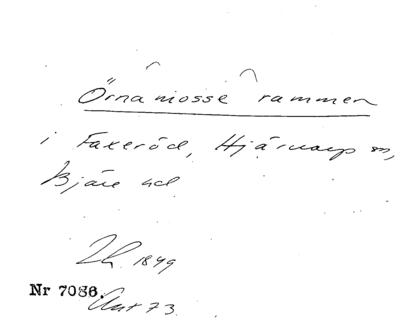 Örnamosse rammen
i Faxeröd, Hjärnarp sn,
Bjäre hd
1849
Nr 7086.
Ant 73.